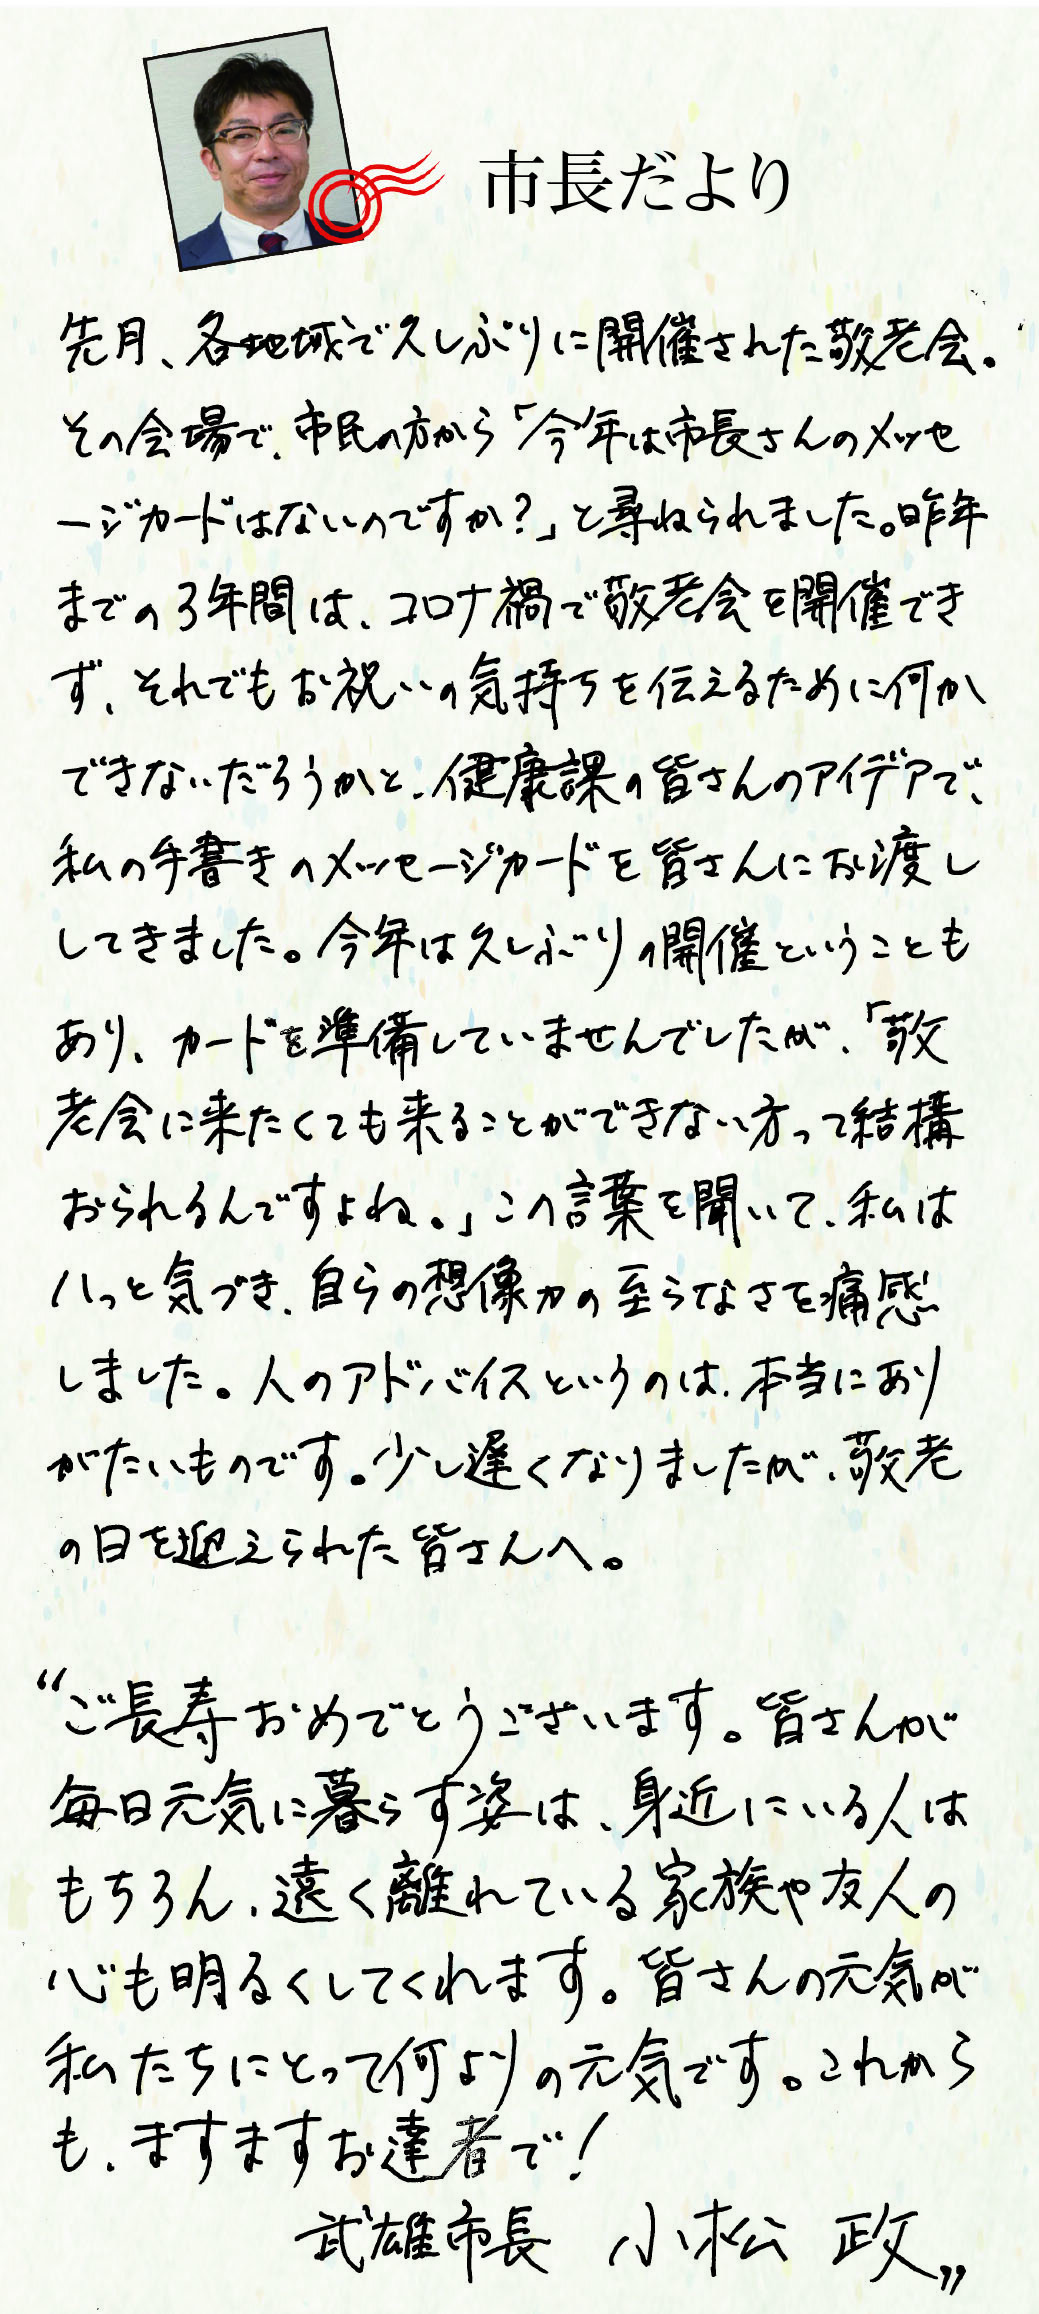 市長だより
先月、各地域で久しぶりに開催された敬老会。
その会場で、市民の方から「今年は市長さんのメッセ
ージカードはないのですか？」と尋ねられました。昨年
までの3年間は、コロナ禍で敬老会を開催でき
ず、それでもお祝いの気持ちを伝えるために何か
できないだろうかと、健康課の皆さんのアイデアで、
私の手書きのメッセージカードを皆さんにお渡し
してきました。今年は久しぶりの開催ということも
あり、カードを準備していませんでしたが、「敬
老会に来たくても来ることができない方って結構
おられるんですよね。」この言葉を聞いて、私は
ハっと気づき、自らの想像力の至らなさを痛感
しました。人のアドバイスというのは、本当にあり
がたいものです。少し遅くなりましたが、敬老
の日を迎えられた皆さんへ。
“ご長寿おめでとうございます。皆さんが
毎日元気に暮らす姿は、身近にいる人は
もちろん、遠く離れている家族や友人の
心も明るくしてくれます。皆さんの元気が
私たちにとって何よりの元気です。これから
も、ますますお達者で！
武雄市長 小松 政”